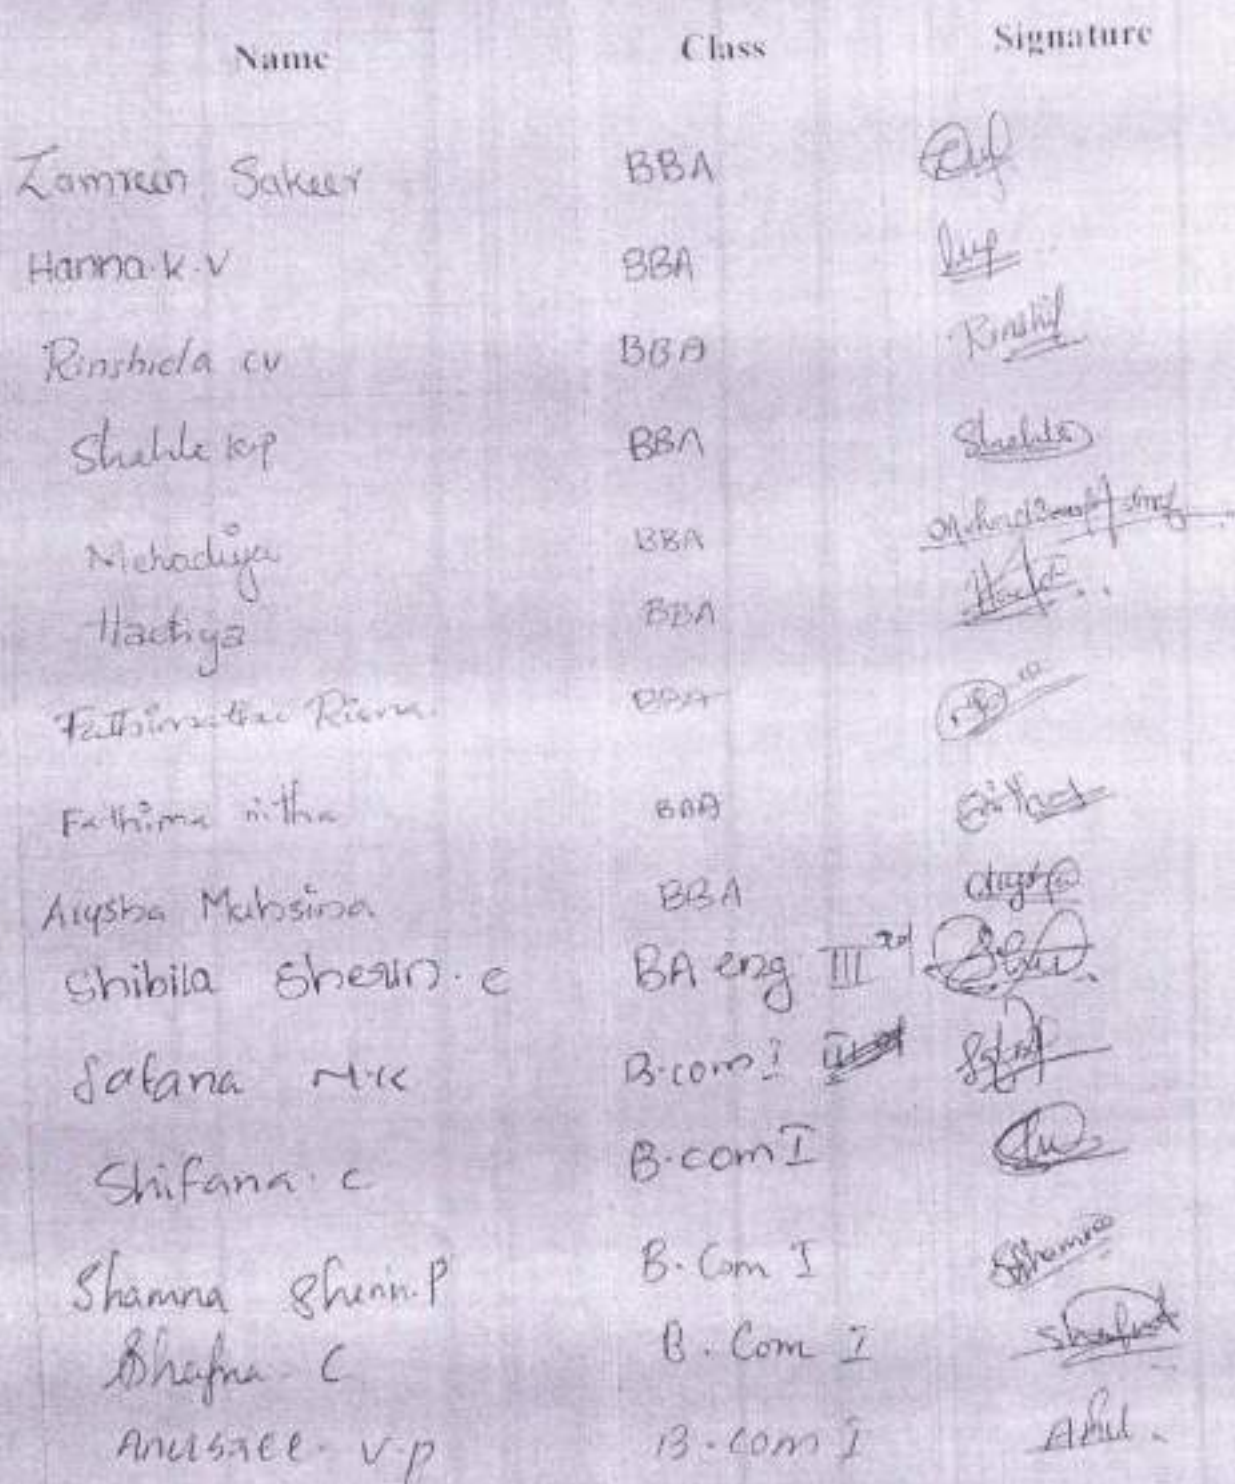 Name Class Signature
Zamreen Sakeer BBA
Hanna.K.V BBA
Rinshida cv BBA Rinshi
Shahla KP BBA Shahla
Mehadiya BBA
Hadiya BBA
Fathimatha Risna. BBA
Fathima nitha BBA
Aiysha Muhsina BBA
Shibila Sherin.c BA eng III rd
Safana M.K B.com I
Shifana.c B.com I
Shamna Sherin.P B.Com I Shamna
Shafna.C B.Com I Shafna
Anusree.V.P B.com I